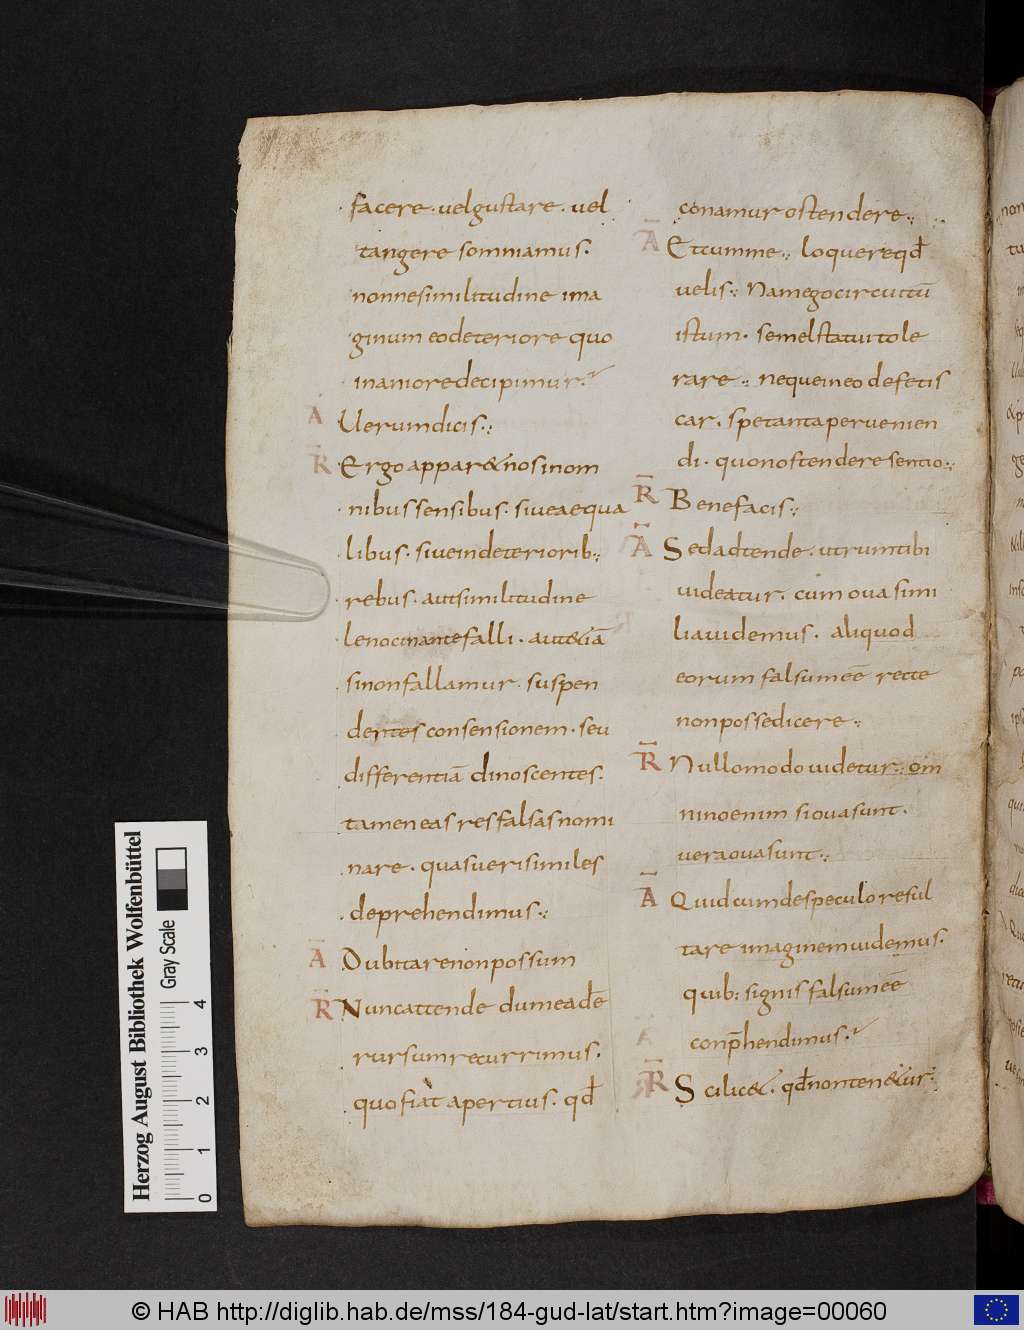 facere · uel gustare · uel
tangere somniamus.
nonne similitudine ima
ginum eo deteriore quo
inaniore decipimur.
A Uerum dicis.
R̄ Ergo appar& nos in om
nibus sensibus. siue aequa
libus. siue in deteriorib;
rebus. aut similitudine
lenocinante falli. aut &iā
si non fallamur. suspen
dentes consensionem. seu
differentiā dinoscentes.
tamen eas res falsas nomi
nare. quas ueri similes
deprehendimus.
Ā Dubitare non possum
R̄ Nunc attende dum eadē
rursum recurrimus.
quo fiat apertius. qđ
conamur ostendere.
Ā Et tu mme. loquere qđ
uelis. Nam ego circuitū
istum. semel statui tole
rare. neque in eo defetis
car. spe tanta peruenien
di. quo nos tendere sentio.
R̄ Bene facis.
Ā Sed adtende. utrum tibi
uideatur. cum oua simi
lia uidemus. aliquod
eorum falsum eē recte
nos posse dicere.
R̄ Nullo modo uidetur. om
nino enim si oua sunt.
uera oua sunt.
Ā Quid cum de speculo resul
tare imaginem uidemus.
quib; signis falsum eē
conp̄hendimus.
R̄ Scilic&. qđ non ten&ur.
Herzog August Bibliothek Wolfenbüttel
Gray Scale
0 1 2 3 4
© HAB http://diglib.hab.de/mss/184-gud-lat/start.htm?image=00060